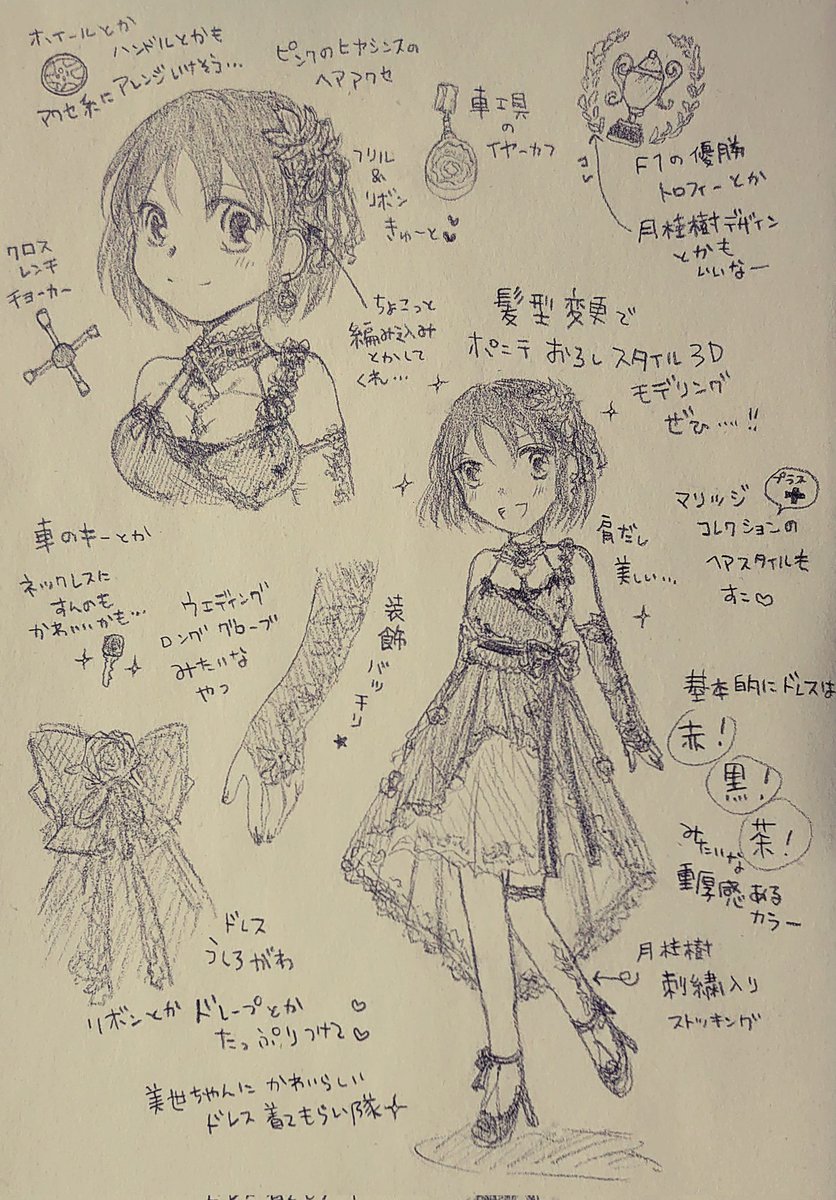 ホイールとか
ハンドルとかも
アクセ系にアレンジいけそう…
ピンクのヒヤシンスの
ヘアアクセ
車工具
の
イヤーカフ
フリル
&
リボン
きゅーと
F1の優勝
トロフィーとか
月桂樹デザイン
とかも
いいなー
クロス
レンチ
チョーカー
ちょこっと
編み込み
とかして
くれ…
髪型変更で
ポニテおろしスタイル3D
モデリング
ぜひ……!!
プラス
マリッジ
コレクションの
ヘアスタイルも
すこ♡
肩だし
美しい…
車のキーとか
ネックレスに
すんのも
かわいいかも…
ウエディング
ロンググローブ
みたいな
やつ
装飾バッチリ★
基本的にドレスは
赤!
黒!
茶!
みたいな
重厚感ある
カラー
月桂樹
刺繍入り
ストッキング
ドレス
うしろがわ
リボンとかドレープとか♡
たっぷりつけて♡
美世ちゃんにかわいらしい
ドレス着てもらい隊